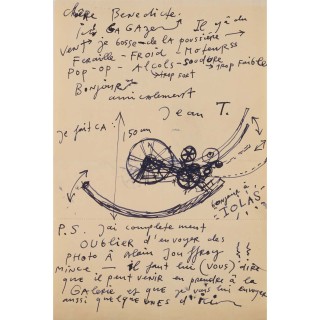 chère Benedicte.
GAGazer Il y a du
vent je bosse de la poussière
Feraille - FROID - Moteurs
POP - OP - Alcols - soudure trop faible
trop fort
Bonjours
amicalement
Jean T.
je fait CA : 150 cm
bonjour à
IOLAS
P.S. J'ai completement
OUBLIER d'envoyer des
PHOTO à Alain Jouffroy
MINCE — Il faut lui (VOUS) dire
que il peut venir en prendre à la
GAlerie et que je vais lui envoyer
aussi quelque UNES d'ici